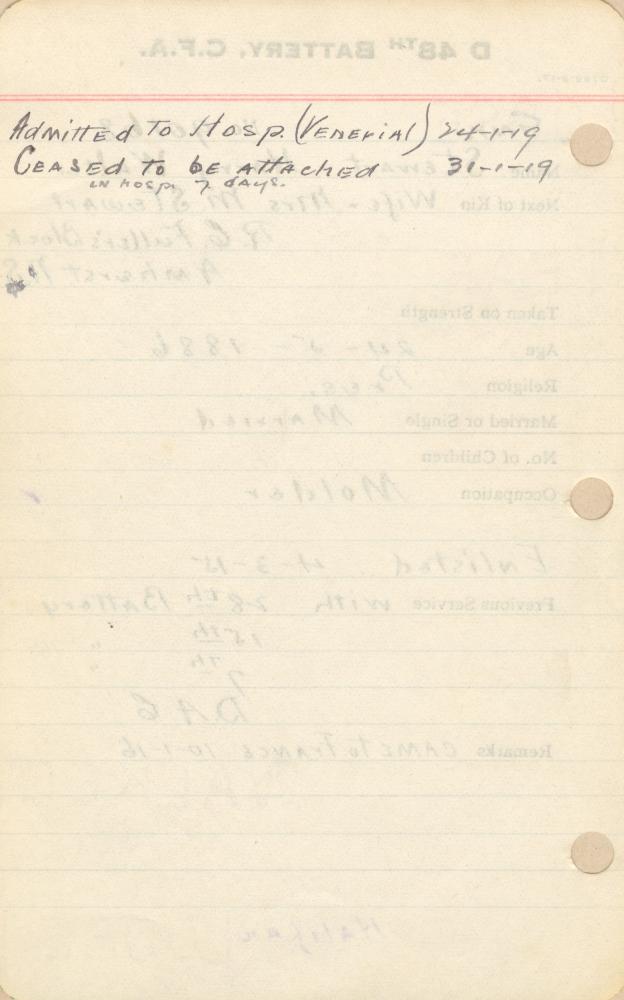 Admitted To Hosp. (Venerial) 24-1-19
Ceased to be attached 31-1-19
in Hosp. 7 days.
D 48TH BATTERY, C.F.A.
Stewart
Next of Kin Wife - Mrs M Stewart
Amherst N.S
Taken on Strength
Age 24-5-1886
Religion Pres.
Married or Single Married
No. of Children
Occupation Molder
Enlisted 4-3-15
Previous Service with 28th Battery
15th "
7th
D A C
Remarks Came to France 10-1-16
Halifax